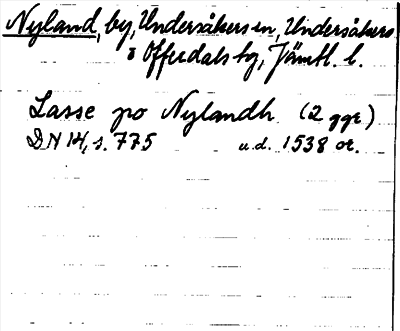 Nyland, by, Undersåkers sn, Undersåkers
o Offerdals tg, Jämtl. l.
Lasse po Nylandh (2 ggr)
DN 14, s. 775 u.d. 1538 or.